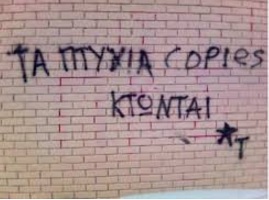 ΤΑ ΠΤΥΧΙΑ COPIES
ΚΤΩΝΤΑΙ
★T